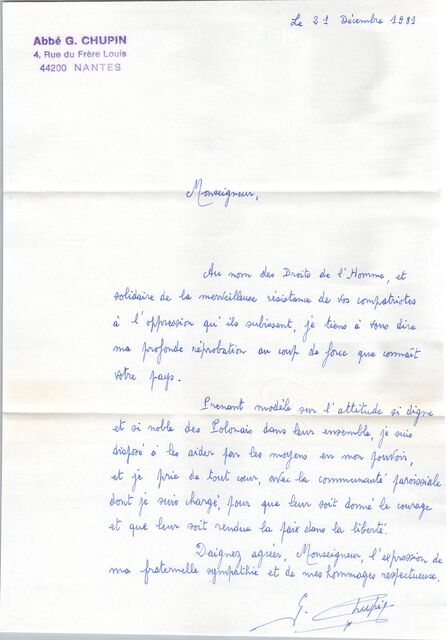 Le 21 Décembre 1981
Abbé G. CHUPIN
4, Rue du Frère Louis
44200 NANTES
Monseigneur,
Au nom des Droits de l'Homme, et
solidaire de la merveilleuse résistance de vos compatriotes
à l'oppression qu'ils subissent, je tiens à vous dire
ma profonde réprobation au coup de force que connaît
votre pays.
Prenant modèle sur l'attitude si digne
et si noble des Polonais dans leur ensemble, je suis
disposé à les aider par les moyens en mon pouvoir,
et je prie de tout cœur, avec la communauté paroissiale
dont je suis chargé, pour que leur soit donné le courage
et que leur soit rendue la paix dans la liberté.
Daignez agréer, Monseigneur, l'expression de
ma fraternelle sympathie et de mes hommages respectueux.
G. Chupin